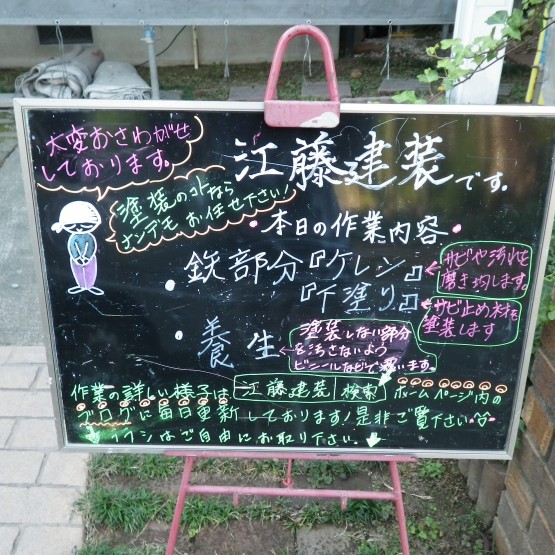 大変おさわがせ
しております。
江藤建装です。
塗装のコトなら
ナンデモお任せ下さい!
・本日の作業内容・
鉄部分『ケレン』
サビや汚れを
磨き均します。
『下塗り』
サビ止め材を
塗装します
養生
塗装しない部分
を汚さないよう
ビニールなどで覆います。
作業の詳しい様子は 江藤建装 検索 ホームページ内の
ブログに毎日更新しております!是非ご覧下さい
チラシはご自由にお取り下さい。